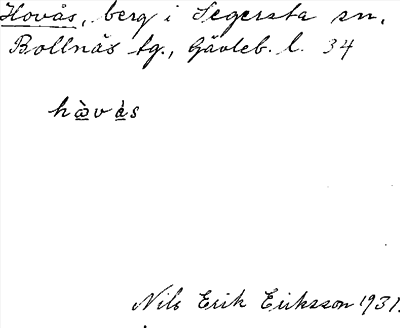 Hovås, berg i Segersta sn,
Bollnäs tg., Gävleb. l. 34
hàvàs
Nils Erik Eriksson 1931.